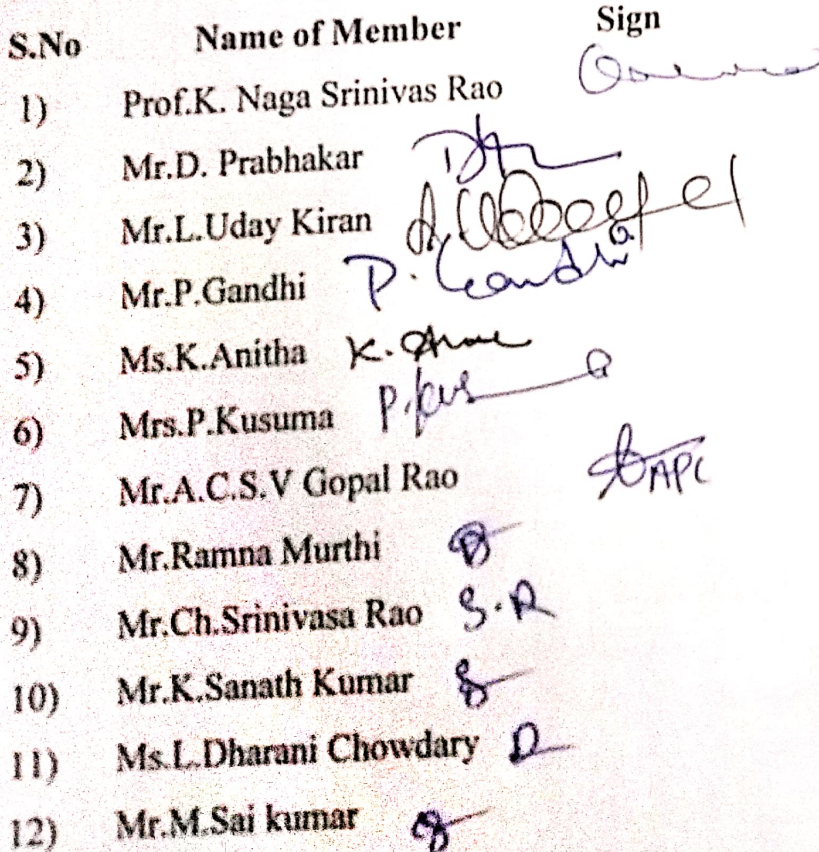 S.No Name of Member Sign
1) Prof.K. Naga Srinivas Rao
2) Mr.D. Prabhakar
3) Mr.L.Uday Kiran
4) Mr.P.Gandhi P. Gandhi
5) Ms.K.Anitha K.
6) Mrs.P.Kusuma P.
7) Mr.A.C.S.V Gopal Rao
8) Mr.Ramna Murthi
9) Mr.Ch.Srinivasa Rao S.R
10) Mr.K.Sanath Kumar
11) Ms.L.Dharani Chowdary
12) Mr.M.Sai kumar